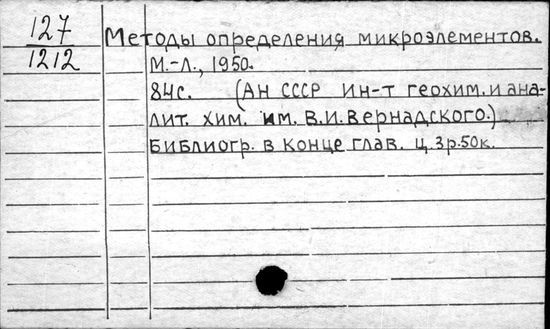 127
1212
Методы определения микроэлементов.
М.-Л., 1950.
84с. (АН СССР Ин-т геохим. и ана-
лит. хим. им. В.И. Вернадского.)
Библиогр. в конце глав. ц. 3р.50к.